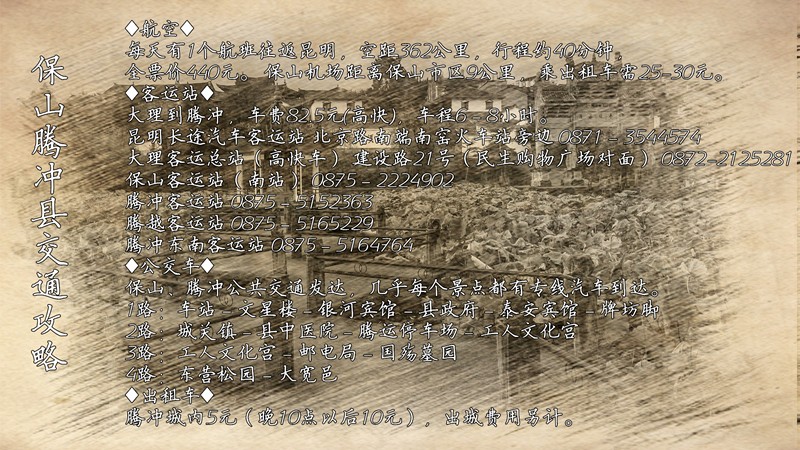 保山腾冲县交通攻略
◆航空◆
每天有1个航班往返昆明，空距362公里，行程约40分钟，
全票价440元。保山机场距离保山市区9公里，乘出租车需25-30元。
◆客运站◆
大理到腾冲，车费82.5元(高快)，车程6-8小时。
昆明长途汽车客运站 北京路南端南窑火车站旁边 0871-3544574
大理客运总站（高快车）建设路21号（民生购物广场对面）0872-2125281
保山客运站（南站）0875-2224902
腾冲客运站 0875-5152363
腾越客运站 0875-5165229
腾冲东南客运站 0875-5164764
◆公交车◆
保山、腾冲公共交通发达，几乎每个景点都有专线汽车到达。
1路：车站-文星楼-银河宾馆-县政府-泰安宾馆-牌坊脚
2路：城关镇-县中医院-腾运停车场-工人文化宫
3路：工人文化宫-邮电局-国殇墓园
4路：东营松园-大宽邑
◆出租车◆
腾冲城内5元（晚10点以后10元），出城费用另计。